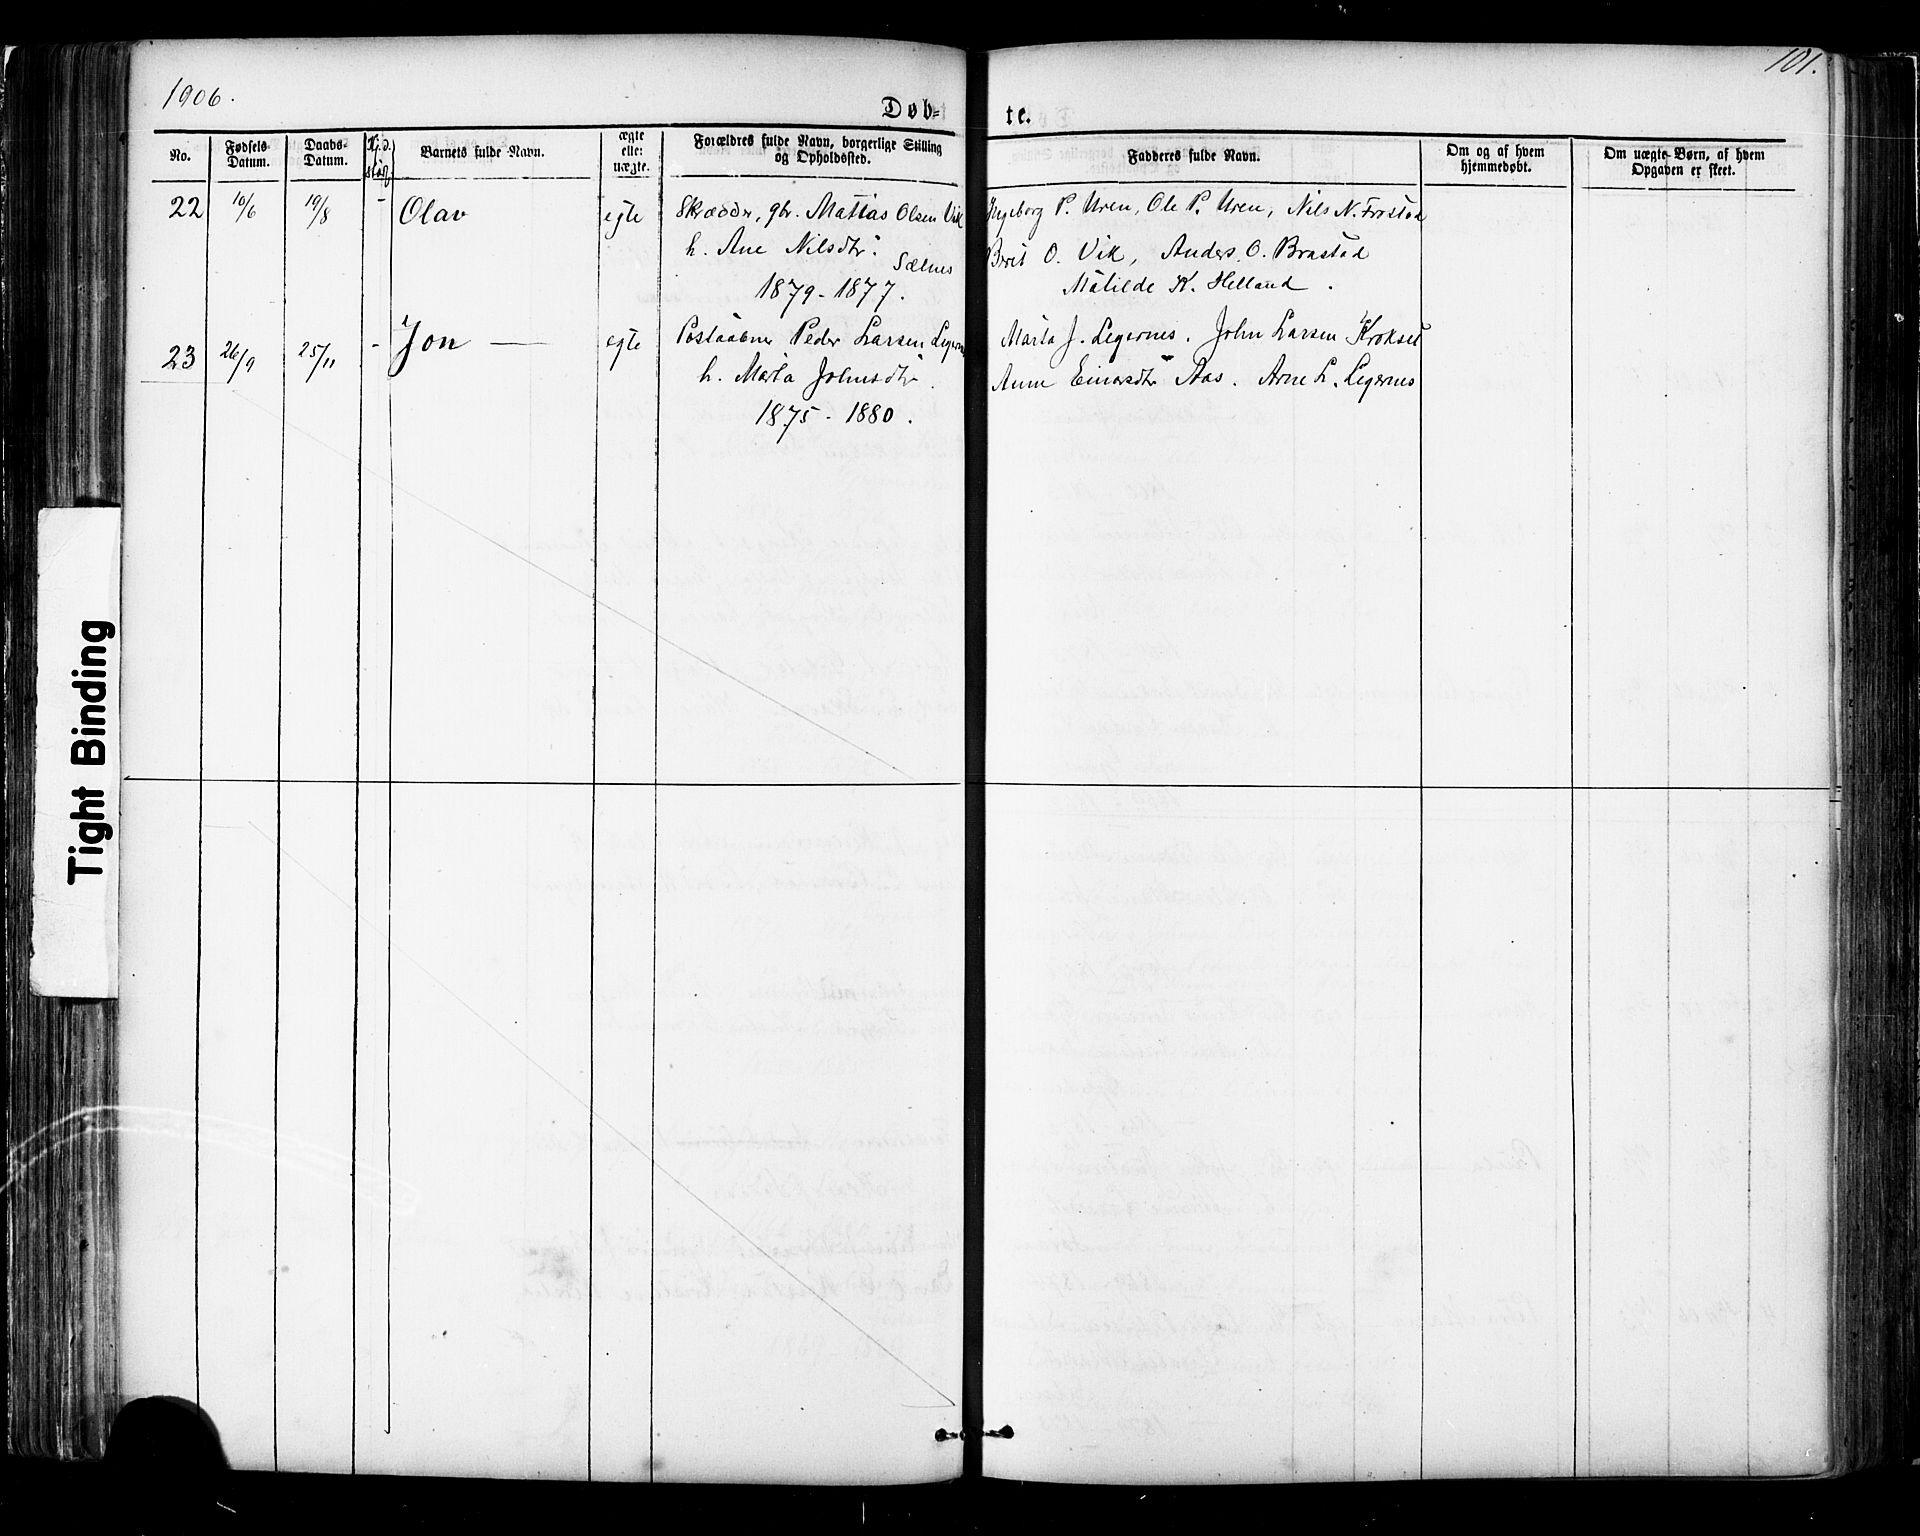 1906.
101.
Døb-
te.
No.
Fødsels-
Datum.
Daabs-
Datum.
Barnets fulde Navn.
ægte
eller
uægte.
Forældres fulde Navn, borgerlige Stilling
og Opholdssted.
Fadderes fulde Navn.
Om og af hvem
hjemmedøbt.
Om uægte Børn, af hvem
Opgaven er skeet.
22 10/6 19/8 - Olav egte Skrædder, gbr. Mattias Olsen Vik Ingeborg P. Uren, Ole P. Uren, Nils N. Frostad
h. Ane Nilsdtr. Sælnes Berit O. Vik, Anders O. Brastad
1879 - 1877. Matilde K. Helland.
23 26/9 25/11 - Jon — egte Postaabner Peder Larsen Legernes Marta J. Legernes. John Larsen Krokset
h. Marta Johnsdtr. Anne Einarsdtr Aas. Arne L. Legernes
1875 - 1880.
Tight Binding